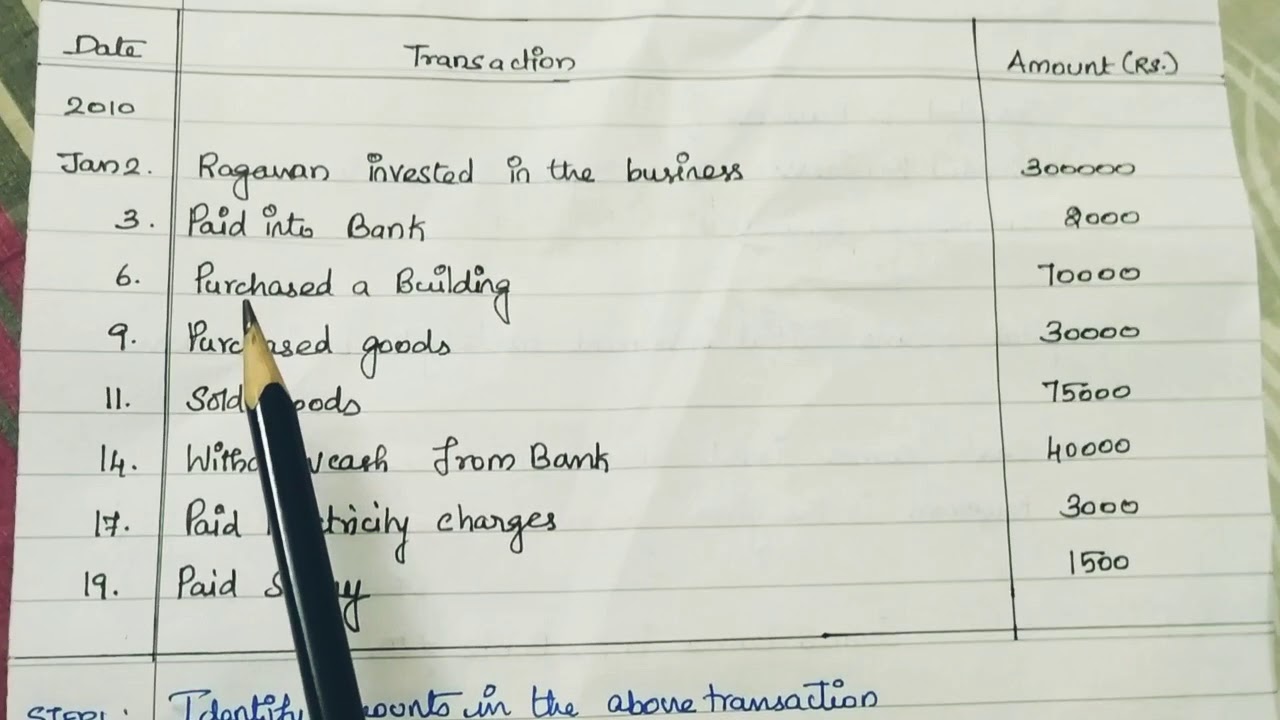 Date Transaction Amount (Rs.)
2010
Jan 2. Ragavan invested in the business 300000
3. Paid into Bank 8000
6. Purchased a Building 70000
9. Purchased goods 30000
11. Sold goods 75000
14. cash from Bank 40000
17. Paid charges 3000
19. Paid 1500
STEP1: Identify in the above transaction